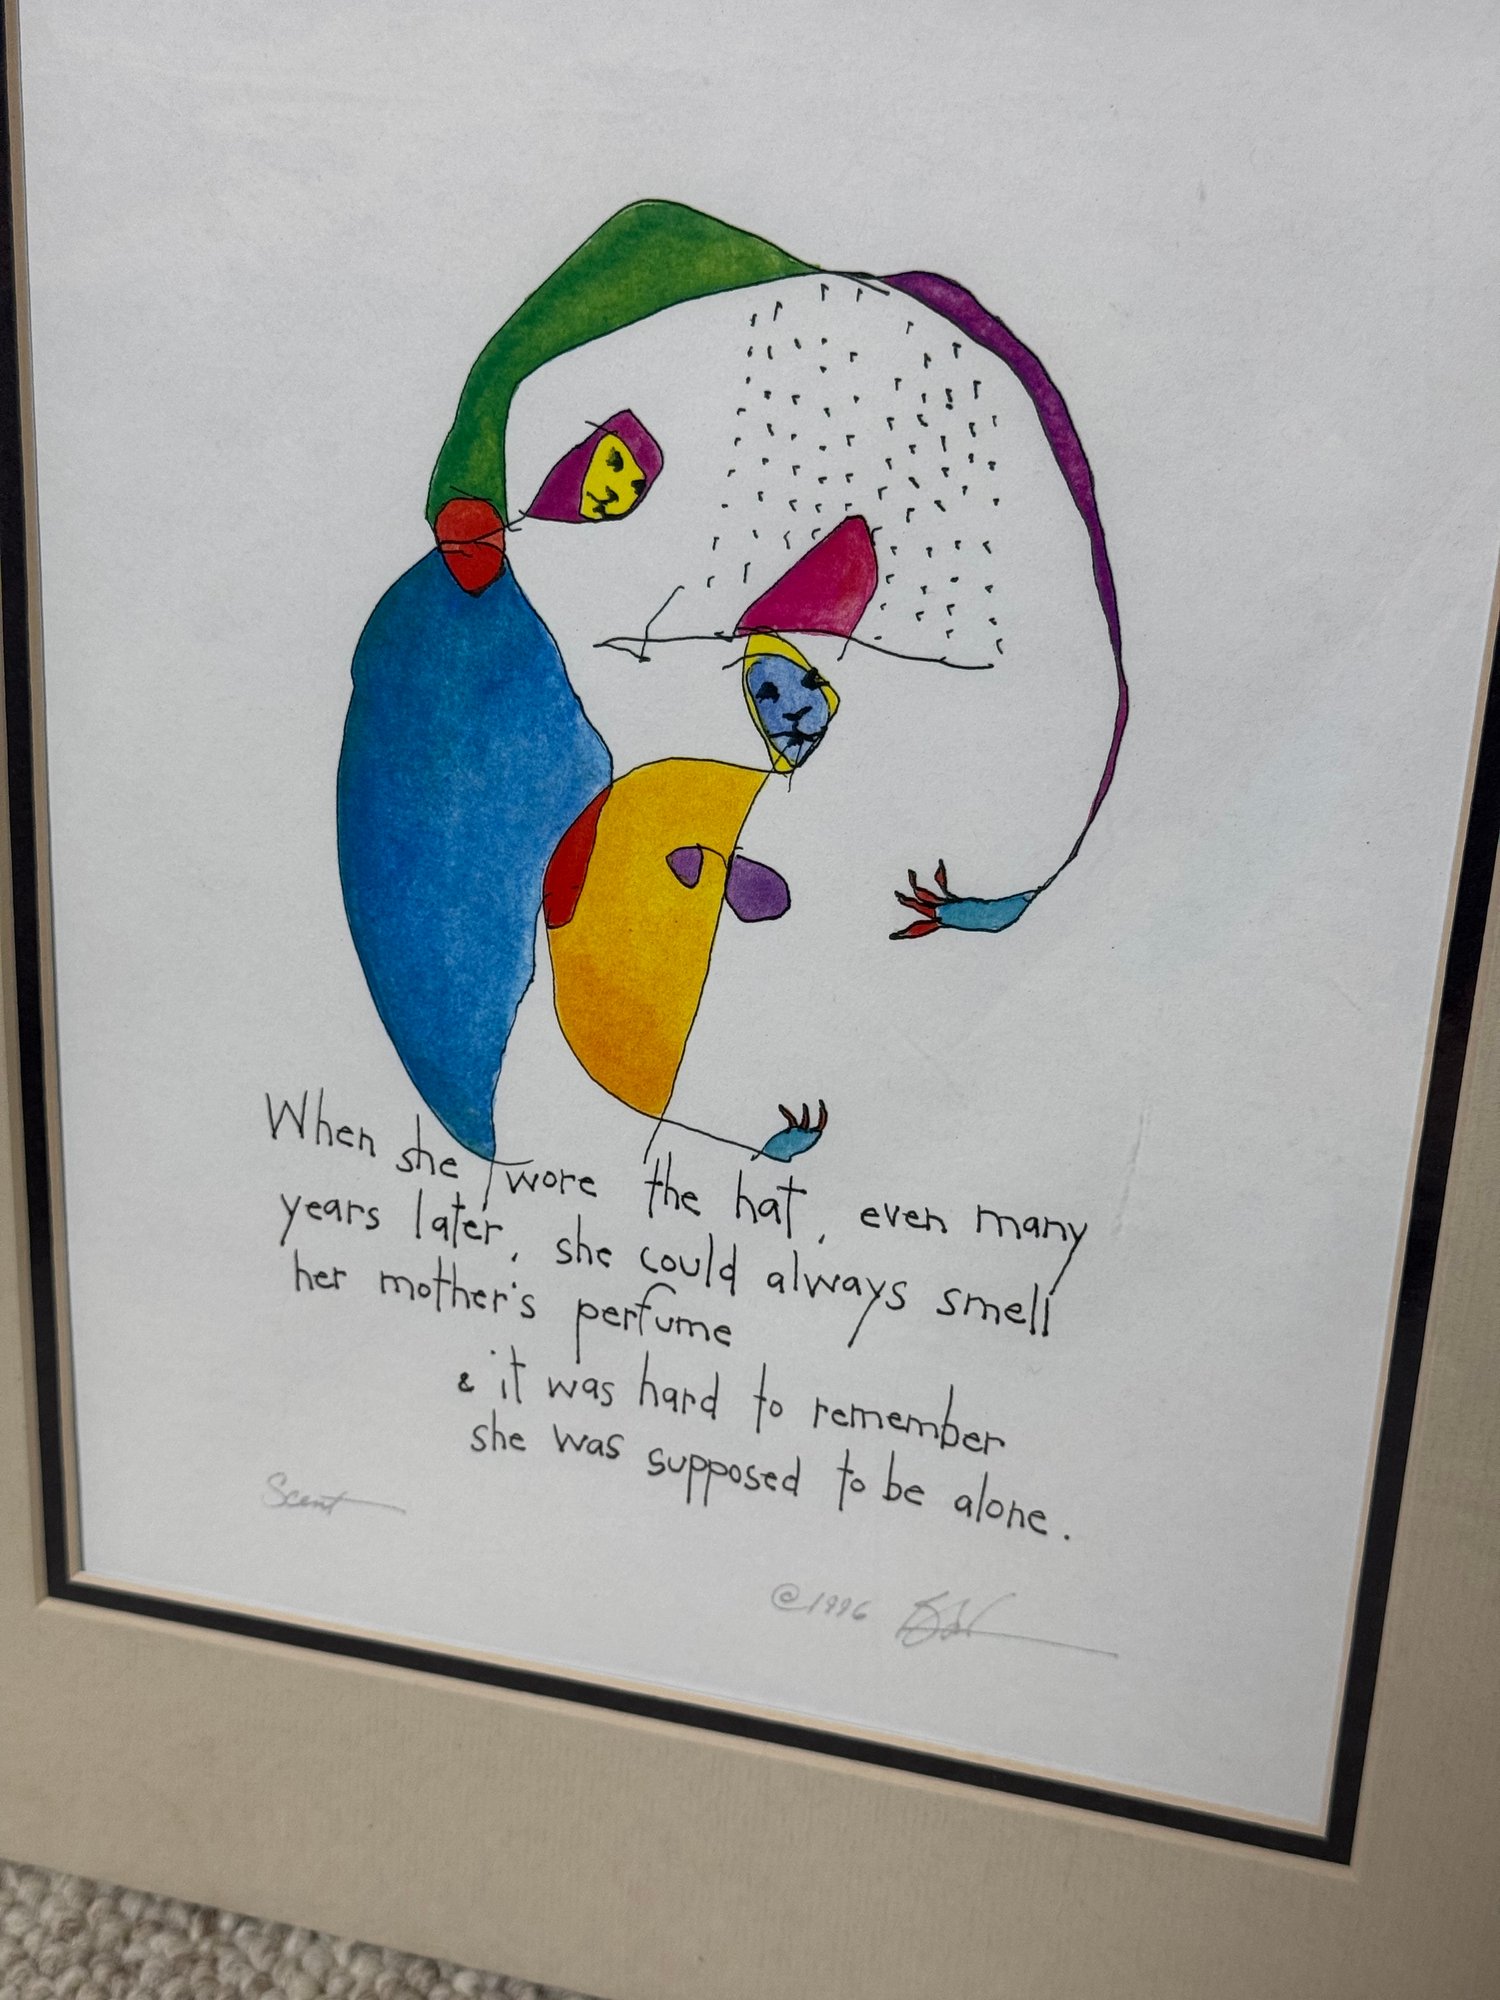 When she wore the hat, even many
years later, she could always smell
her mother's perfume
& it was hard to remember
she was supposed to be alone.
Scent
©1996